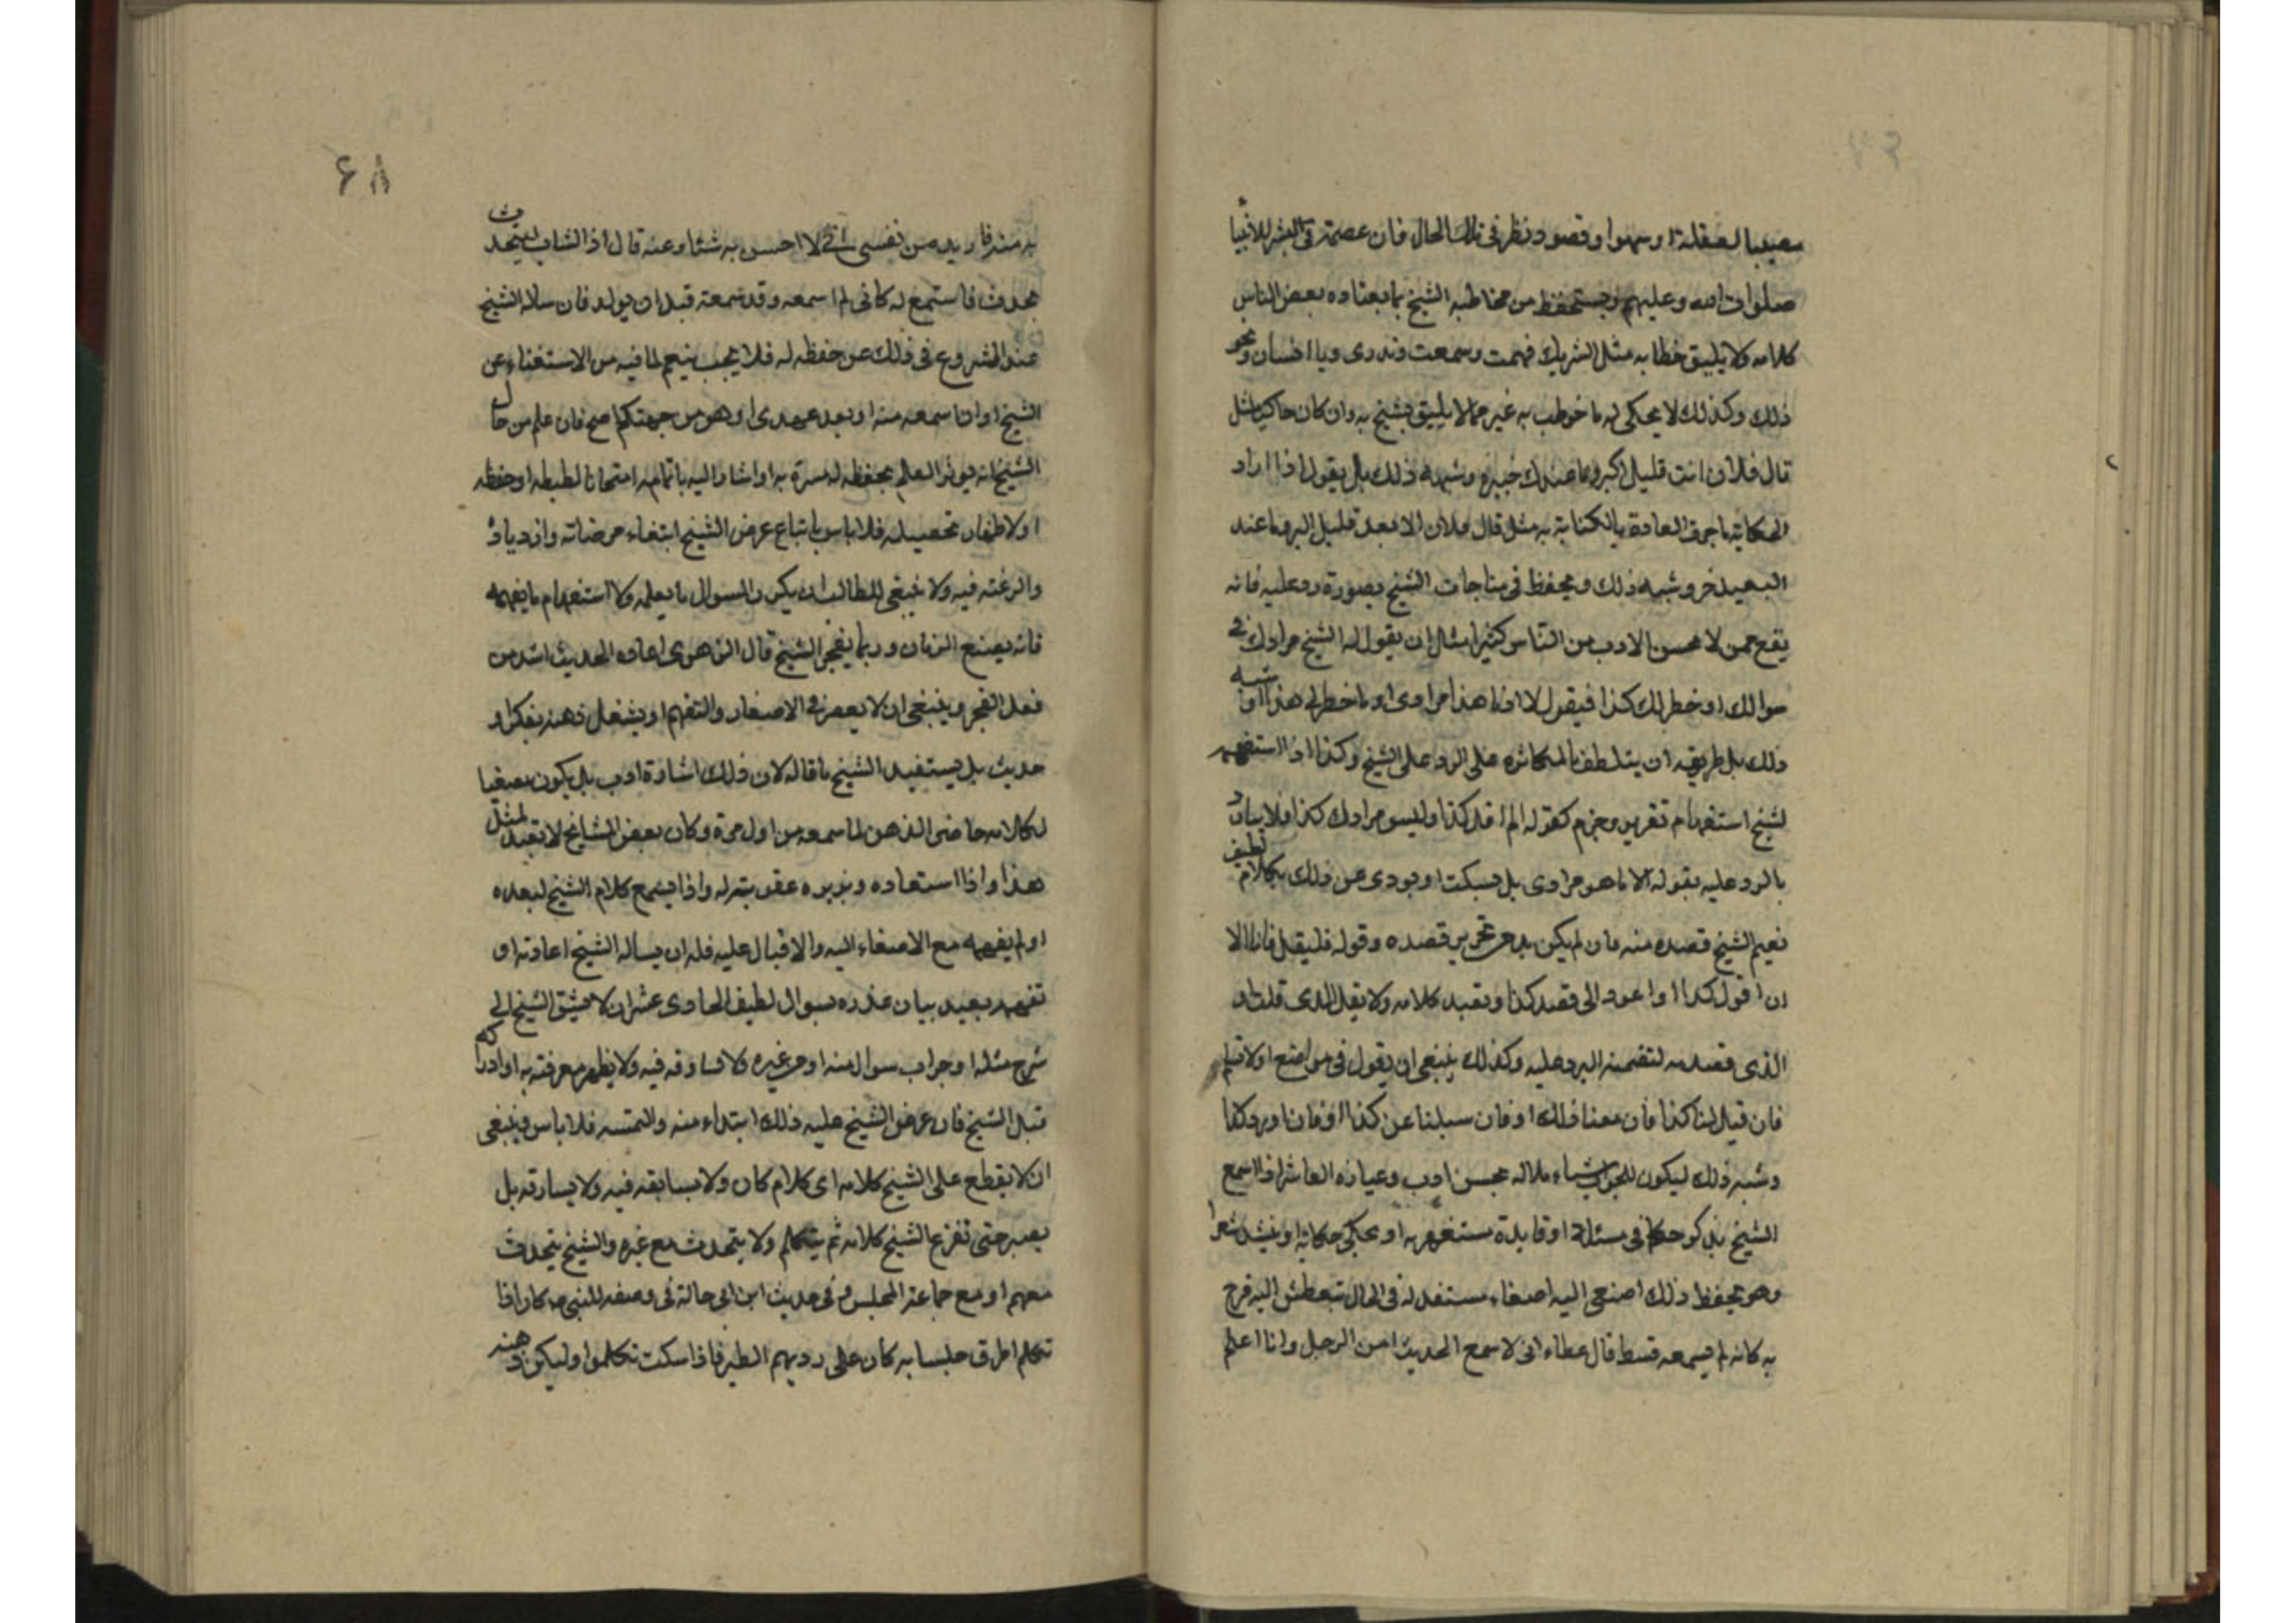 مصيبا لغفلة او سهوا و قصود نظر فى تلك الحال فان عصمة فى البشر للانبيأ
صلوات الله و عليهم و يتحفظ من مخاطبه الشيخ بما يعتاده بعض الناس
كلامه ولا يليق خطابه مثل الشريك فهمت وسمعت وتدرى ويا انسان ونحو
ذلك وكذلك لا يحكى له ما خوطب به غير مما لا يليق بشيخ به وان كان حاكيا مثل
قال فلان انت قليل البر وما عندك خير وشبه ذلك بل يقول اذا اراد
الحكاية ما جرت العادة بالكناية به مثل قال فلان الا بعد قليل البر وما عند
البعيد خر وشبه ذلك و يحفظ فى مناجات الشيخ بصورة رد عليه فانه
يقع ممن لا يحسن الادب من الناس كثيرا مثل ان يقول له الشيخ مرادك فى
سوالك او خطر لك كذا فيقول لا او ما هذا مرادى او ما خطر لى هذا او شبه
ذلك بل طريقه ان يتلطف بالمكاثره على الرد على الشيخ وكذا اذا استفهم
لشيخ استفهام تقرير وجزم كقوله الم اقل كذا وليس مرادك كذا فلا يبادر
بالرد عليه بقوله لا ما هو مرادى بل يسكت او يودى عن ذلك بكلام لطيف
نعيم الشيخ قصده منه فان لم يكن بد من تحرير قصده وقوله فليقل فانا الا
ان اقول كذا او اعود الى قصد كذا و تعيد كلامه ولا يقل الذى قلت او
الذى قصدمه لتضمنه الرد عليه وكذلك ينبغى ان يقول فى مواضع او لا تيلم
فان قيل لنا كذا فان معنا ذلك او فان سبلنا عن كذا او فان اورد كذا
وشبه ذلك ليكون للجواب شاء ملاله بحسن ادب وعيازه العاشر اذا سمع
الشيخ يذكر حكما فى مسئلة او قايدة مستغربه او يحكى حكاية او ينشد شعرا
وهو يحفظ ذلك اصنعى اليه اصغاء مستفد له فى الحال تبعطش اليه فرح
به كانه لم يسمعه قسط قال عطاء انى لا سمع الحديث من الرجل وانا اعلم
۶۸
به منه فاريه من نفسى انى لا احسن به شئا وعنه قال اذ الشاب ليتحدث
بحدث فاستمع له كانى لم اسمعه وقد سمعته قبل ان يولد فان ساله الشيخ
عند الشروع فى ذلك عن حفظه له فلا يجب بنعم لما فيه من الاستغناء عن
الشيخ او انا سمعه منه او بعد عهدى او هو من جهتكم اصح فان علم من حال
الشيخ انه يوثر العلم بحفظه له مسرة به او اشار اليه باتمامه امتحانا لطبطه او حفظه
او لاظهار تحصيله فلا باس باتباع غرض الشيخ ابتغاء مرضاته وازدياد
والرغته فيه ولا ينبغى للطالب ان يكرر السوال ما يعلمه ولا استفهام ما يفهمه
فانه يضيع الزمان وربما يضجر الشيخ قال الزهرى اعاده الحديث اشد من
فعل الفجر و ينبغى ان لا يعصر فى الاصغاء والتفهم او يشغل ذهنه بفكر او
حديث بل يستفيد الشيخ ما قاله لان ذلك اشاءة ادب بل يكون مصغيا
لكلامه حاضر الذهن لما سمعه من اول مرة وكان بعض المشايخ لا تعيد لمثل
هذا واذا استعاده ويزبره عقوبته له واذا يسمع كلام الشيخ لبعده
او لم يفهمه مع الاصغاء اليه والاقبال عليه فله ان يساله الشيخ اعادته او
تفهمه بعيد بيان عذره بسوال لطيف الحادى عشر ان لا يشبق الشيخ الى
شرح مثله او جواب سوال منه او من غيره ولا يساوقه فيه ولا يظهر معرفته به او ادراكه
قبل الشيخ فان عرض الشيخ عليه ذلك ابتداء منه والتمسه فلا باس وينبغى
ان لا يقطع على الشيخ كلامه اى كلام كان ولا يسابقه فيه ولا يساوقه بل
يصبر حتى تفرغ الشيخ كلامه ثم يتكلم ولا يتحدث مع غيره والشيخ يتحدث
معهم او مع جماعة المجلس و فى حديث ابن ابى حالة فى وصفه للنبى ص كان اذا
تكلم اطرق جلسايه كان على روسهم الطير فاذا سكت تكلموا وليكن ذهنه